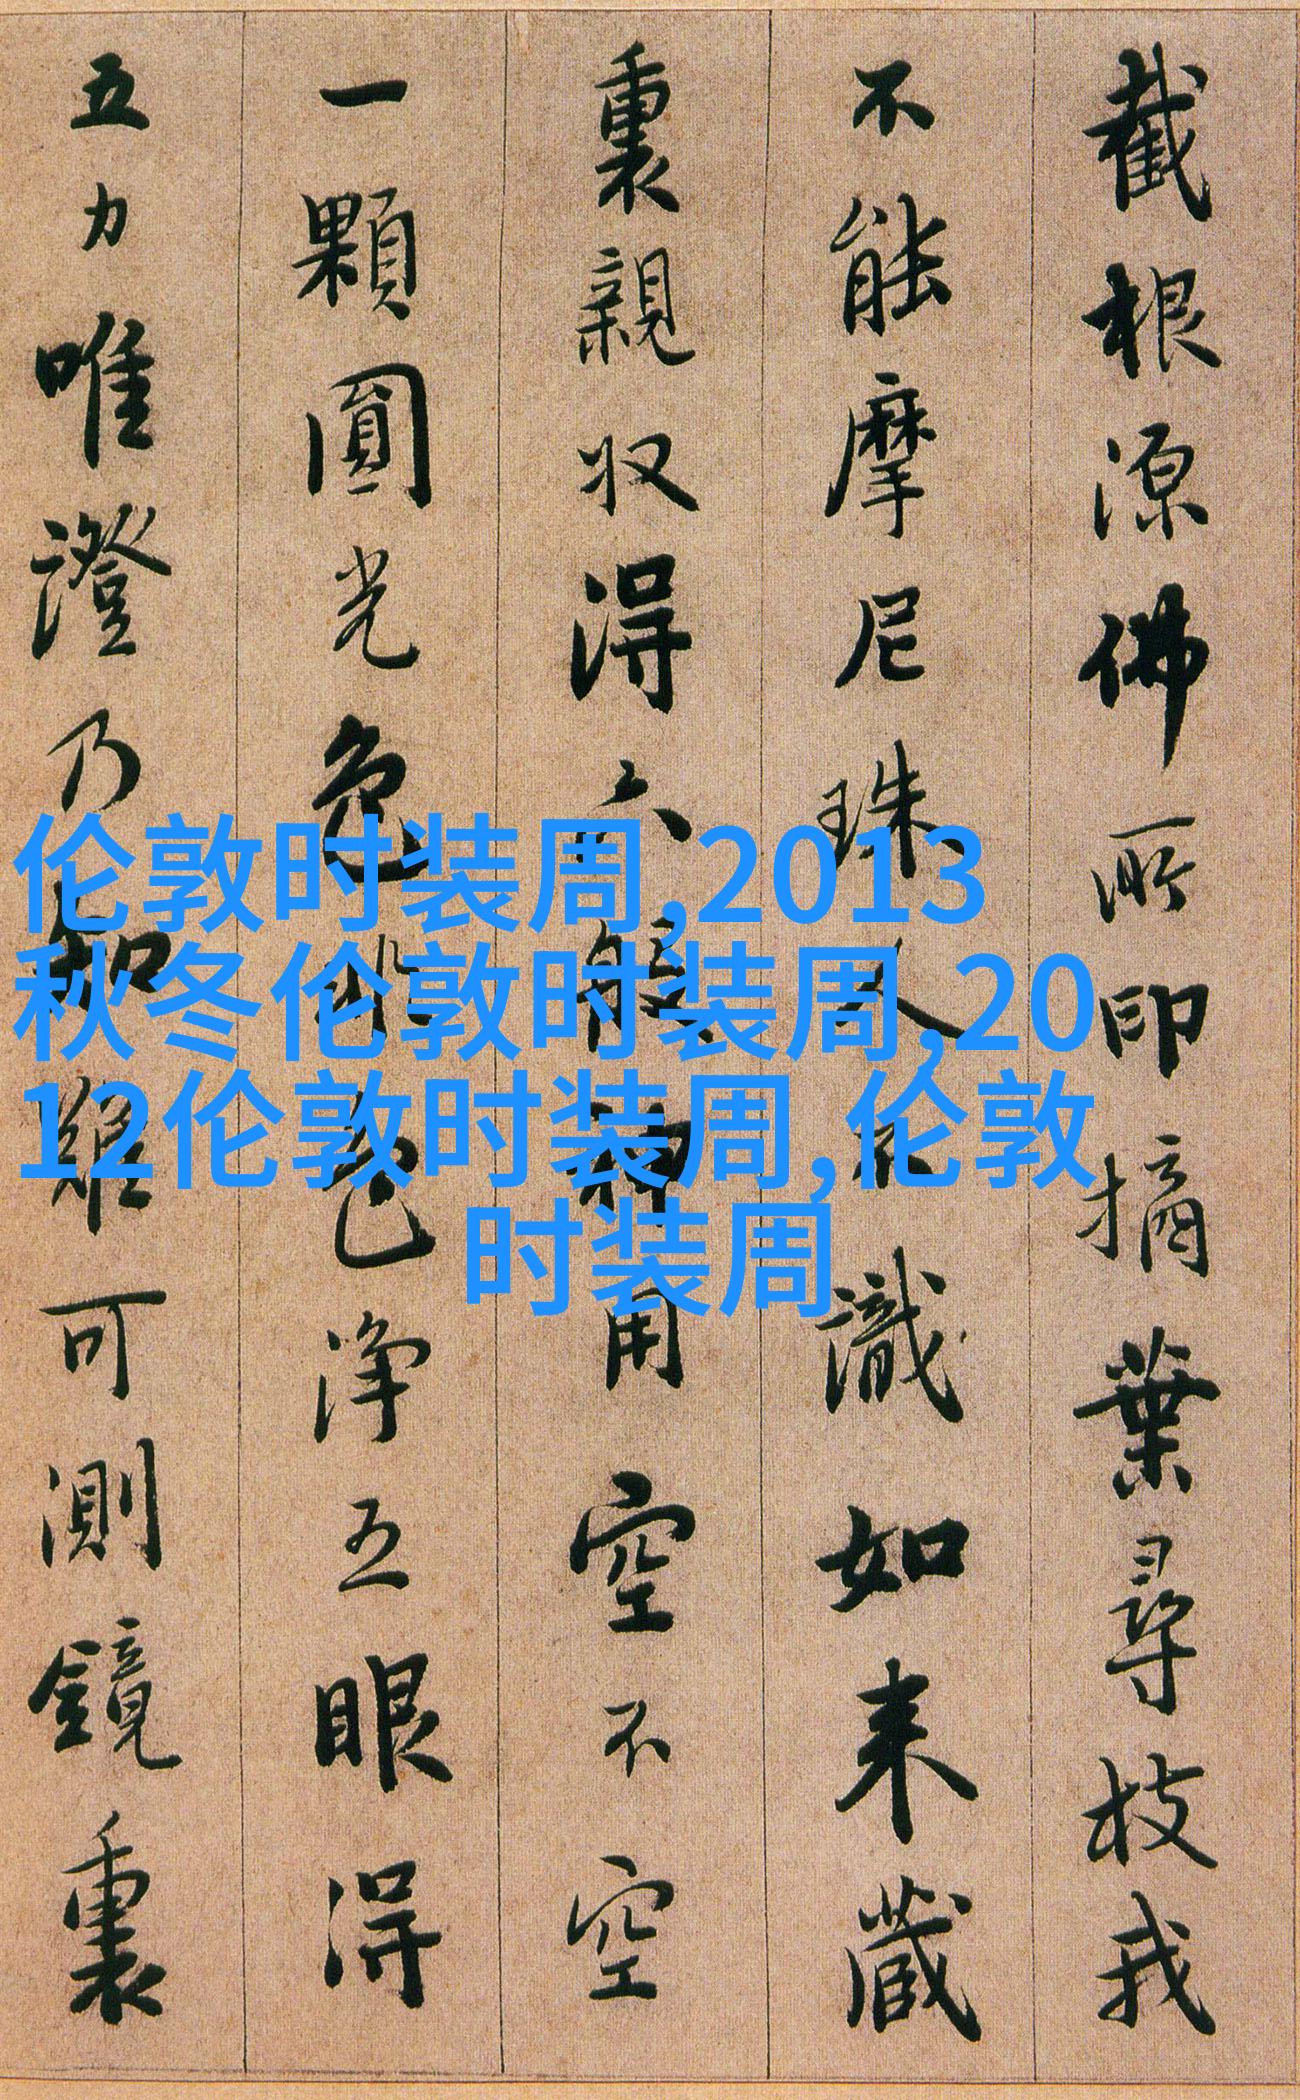 截根源佛所印摘葉尋枝我
不能摩尼珠人不識如来藏
裏親収得六般神用空不空
一顆圓光色非色淨五眼得
五力唯證乃知難可測鏡裏
伦敦时装周,2013
秋冬伦敦时装周,20
12伦敦时装周,伦敦
时装周